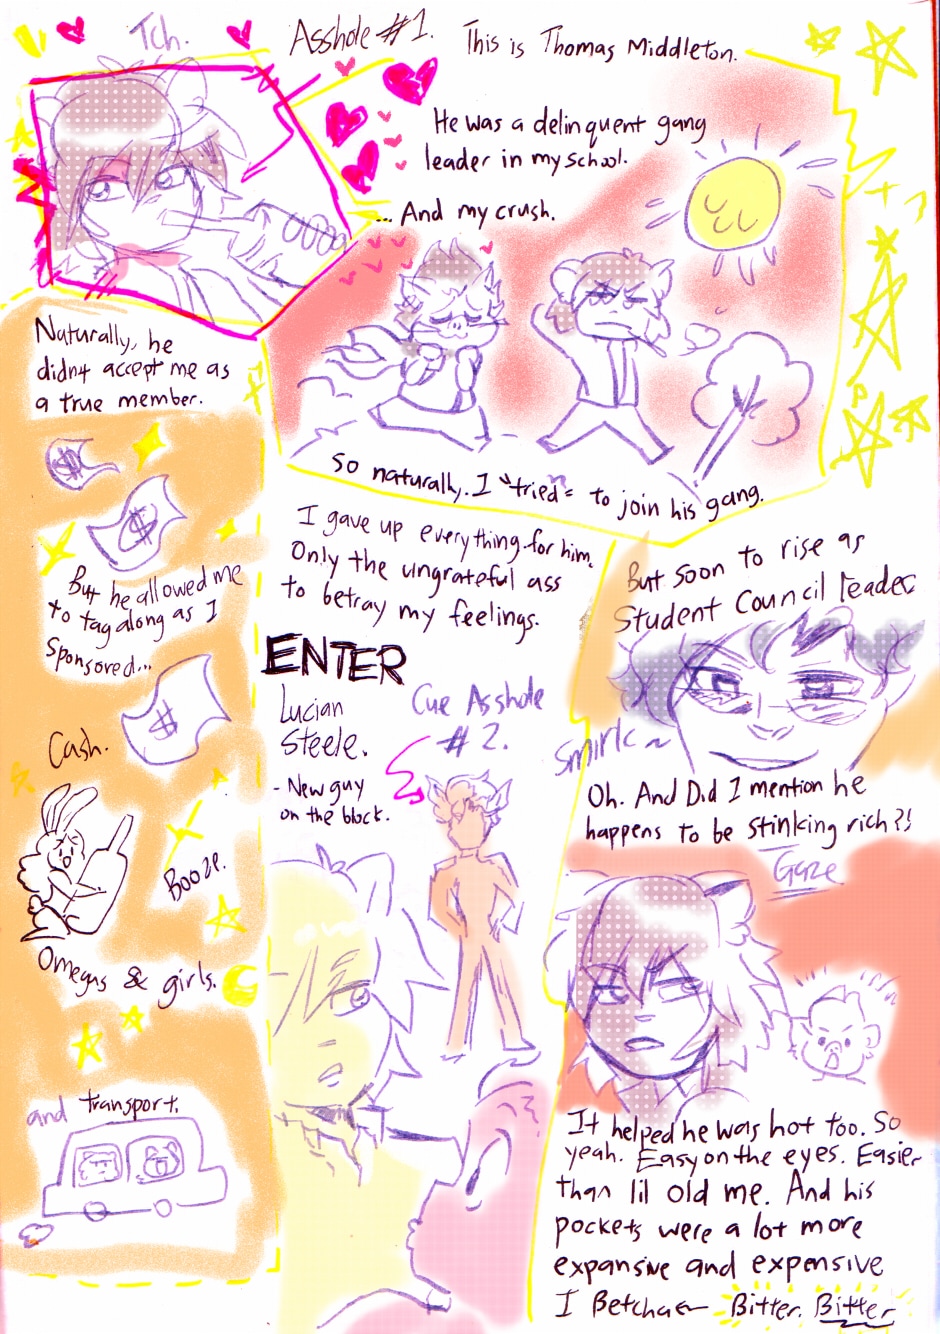 Tch.
Asshole #1.
This is Thomas Middleton.
He was a delinquent gang
leader in my school.
... And my crush.
So naturally, I "tried" to join his gang.
Naturally, he
didn't accept me as
a true member.
$
$
But he allowed me
to tag along as I
Sponsored...
$
Cash.
Booze.
Omegas & girls.
and transport.
I gave up everything for him.
Only the ungrateful ass
to betray my feelings.
ENTER
Lucian
Steele.
- New guy
on the block.
Cue Asshole
#2.
But soon to rise as
Student Council leader
Smirk~
Oh. And Did I mention he
happens to be stinking rich?!
Gaze
It helped he was hot too. So
yeah. Easy on the eyes. Easier
than lil old me. And his
pockets were a lot more
expansive and expensive
I Betcha Bitter. Bitter